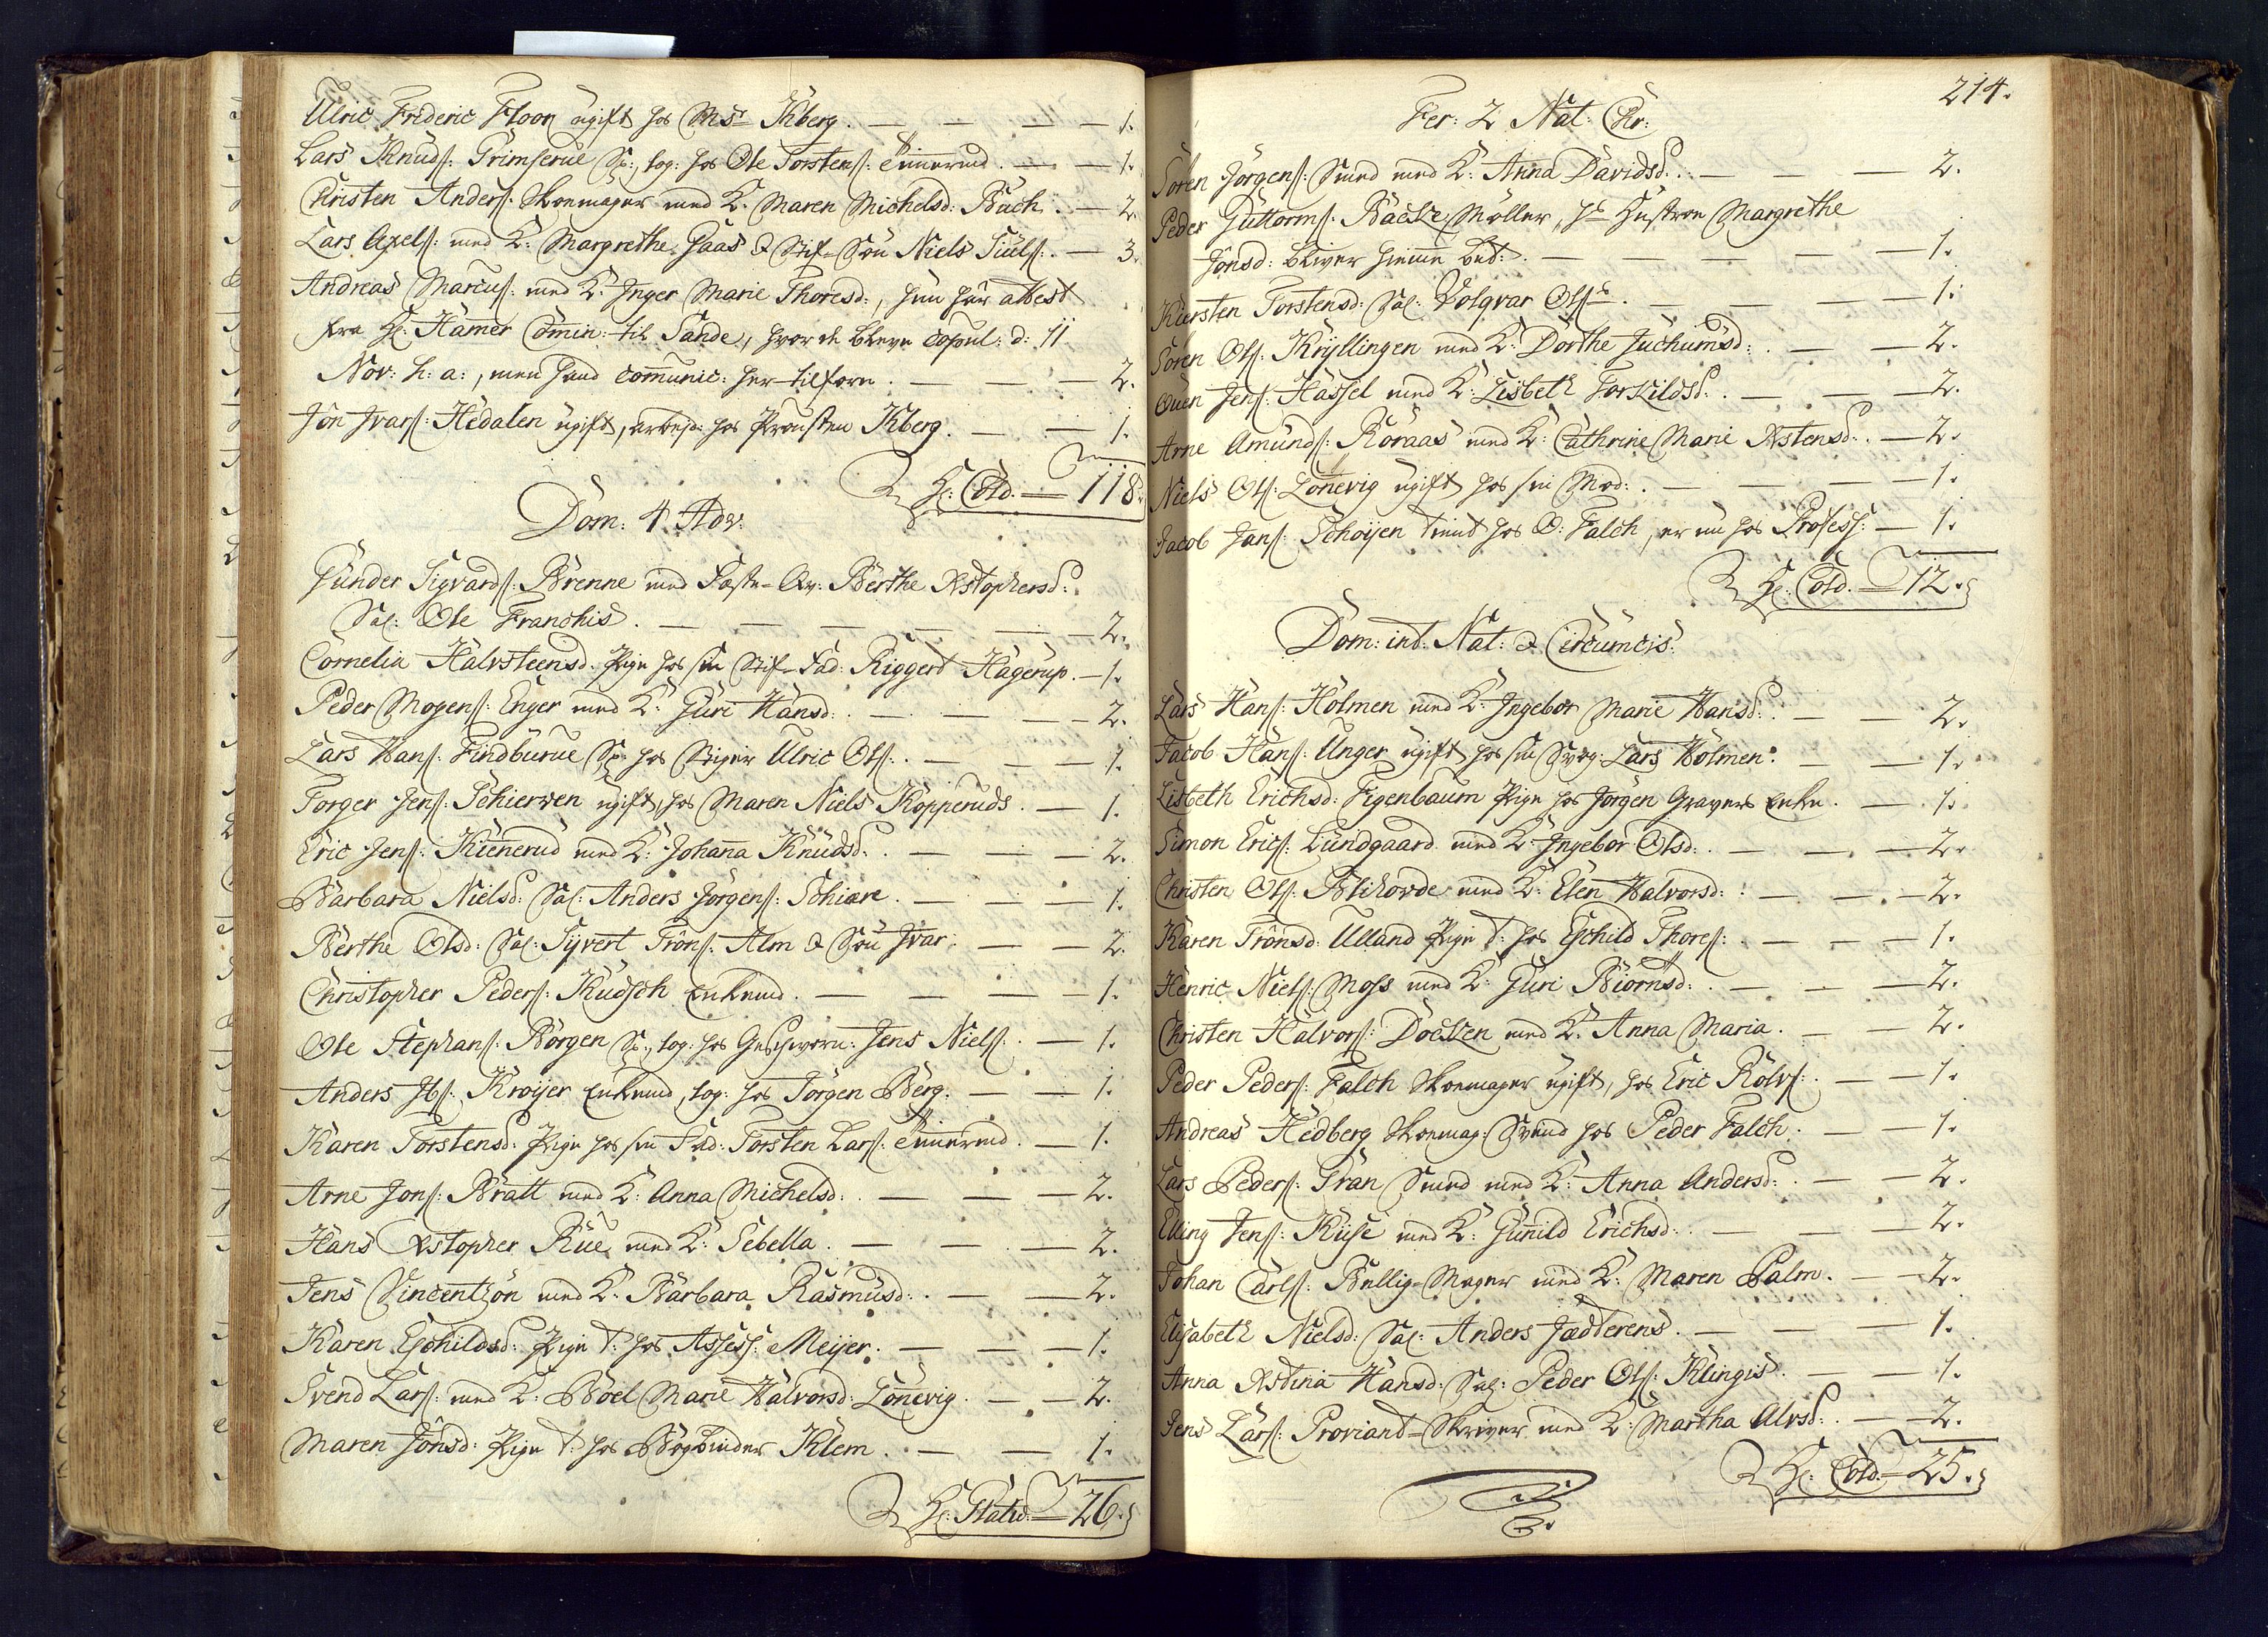 Ulric Frideric Floor ugift hos Mst Kberg. — 1.
Lars Knuds: Grimserue S:, log: hos Ole Torstens: — 1.
Christen Anders: Skoemager med K: Maren Michelsd: Buch. — 2.
Lars Axels: med K: Margrethe Haas & Stif-Søn Niels Juels: — 3.
Andreas Marcus: med K: Inger Marie Thoresd:, hun har attest
fra H: Hamer Comin: til Sande, hvor de bleve copul: d: 11
Nov: h: a:, men hand communic: her tilforn. — 2.
Jon Ivars: Hedalen ugift, arbejd: hos Prousten Kberg. — 1.
H: Cold. — 118.
Dom: 4 Adv:
Gunder Sigvards: Brenne med Fæste-Qv: Berthe Xstophersd:
Sal: Ole Franchis. — 2.
Cornelia Halvsteensd. Pige hos sin Stif-Fad: Riggert Hagerup. — 1.
Peder Mogens: Enger med K: Guri Hansd: — 2.
Lars Hans: Findburue S: hos Stiger Ulric Ols: — 1.
Torger Jens: Schierven ugift, hos Maren Niels Kopperuds. — 1.
Eric Jens: Kiennerud med K: Johanna Knudsd: — 2.
Barbara Nielsd: Sal: Anders Jørgens: Schiare. — 1.
Berthe Olsd: Sal: Syvert Trons: Alm & Søn Ivar. — 2.
Christopher Peders: Kudsch Enkemd. — 1.
Ole Stephans: Børgen S:, log: hos Geschworn: Jens Niels: — 1.
Anders Ibs: Krøyer Enkemd, log: hos Jørgen Berg. — 1.
Karen Torstensd: Pige hos sin Fad: Torsten Lars: — 1.
Arne Jons: Bratt med K: Anna Michelsd: — 2.
Hans Xstopher Rue med K: Sebella. — 2.
Jens Vincentzøn med K: Barbara Rasmusd: — 2.
Karen Eschildsd: Pige t: hos Assess: Meijer. — 1.
Svend Lars: med K: Boel Marie Halvorsd: Lonevig. — 2.
Maren Jonsd: Pige t: hos Bogbinder Klem. — 1.
H: — 26.
214.
Fer: 2 Nat: Chr:
Søren Jørgens: Smed med K: Anna Davidsd: — 2.
Peder Guttorms: Backe Møller, hs Hustroe Margrethe
Jonsd: bliver hiemme — 1.
Kiersten Torstensd: Sal: Volqvar Ols: — 1.
Søren Ols: Kyllingen med K: Dorthe Juchumsd: — 2.
Ouen Jens: Hassel med K: Lisbeth Torkildsd: — 2.
Arne Amunds: Røraas med K: Cathrine Marie Xstensd: — 2.
Niels Ols: Lonevig ugift hos sin Mod: — 1.
Jacob Jans: Schoijen tient hos O: Falch, er nu hos Profess: — 1.
H: Cold. — 12.
Dom: int: Nat: & Circumcis:
Lars Hans: Holmen med K: Ingebor Marie Hansd: — 2.
Jacob Hans: Unger ugift hos sin Svog: Lars Holmen. — 1.
Lisbeth Erichsd: Figenbaum Pige hos Jørgen Gravers Enke. — 1.
Simon Erics: Lundgaard med K: Ingebor Olsd: — 2.
Christen Ols: Blikovde med K: Elen Halvorsd: — 2.
Karen Tronsd: Ulland Pige t: hos Eschild Thores: — 1.
Henric Niels: Moss med K: Guri Biørnsd: — 2.
Christen Halvors: Docken med K: Anna Maria. — 2.
Peder Peders: Falch Skoemager ugift, hos Eric Rolvs: — 1.
Andreas Hedberg Skoemag: Svend hos Peder Falch. — 1.
Lars Peders: Gran Smed med K: Anna Andersd: — 2.
Elling Jens: Kuse med K: Gunild Erichsd: — 2.
Johan Carls: Bellig-Mager med K: Maren Palm. — 2.
Elisabeth Nielsd: Sal: Anders Jædterens. — 1.
Anna Xstina Hansd: Sal: Peder Ols: Klingis. — 1.
Jens Lars: Proviant-Skriver med K: Martha Alvsd: — 2.
H: Cold. — 25.